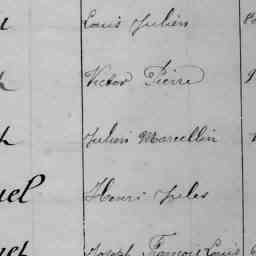 Louis Julien
Victor Pierre
Julien Marcellin
uel Henri Jules
Joseph François Louis